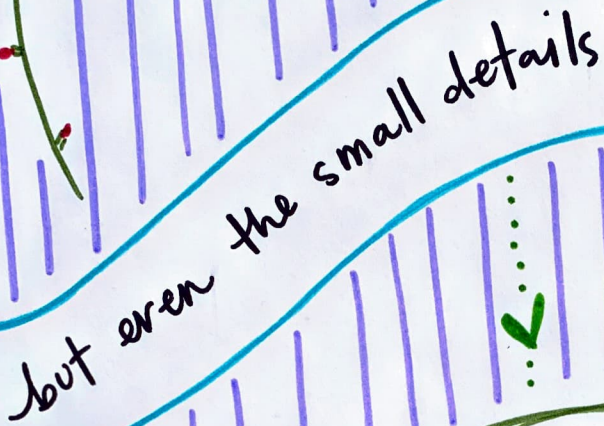 but even the small details